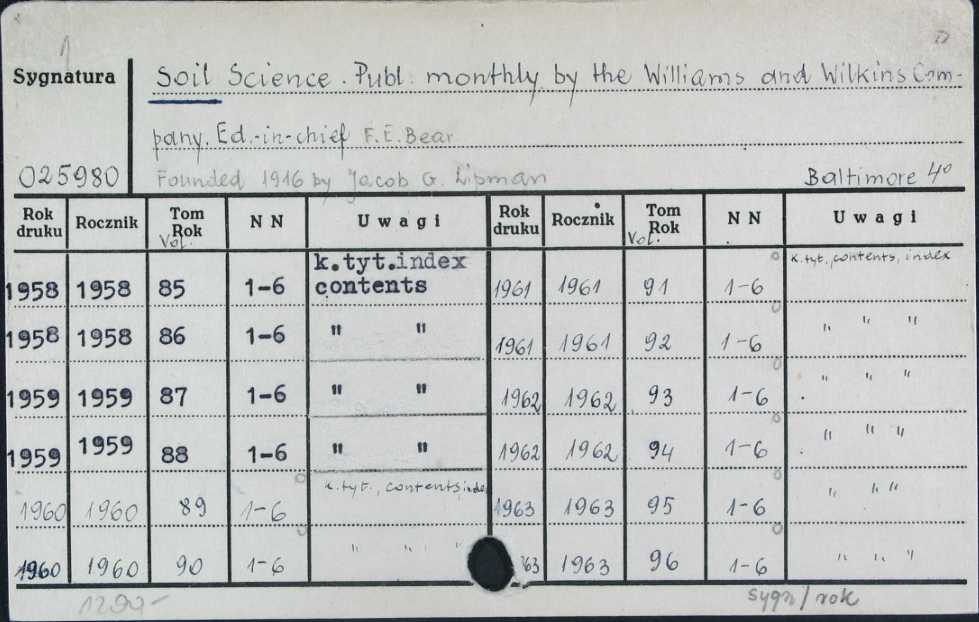 1
Sygnatura
Soil Science. Publ. monthly by the Williams and Wilkins Com-
pany. Ed.-in-chief F.E. Bear
025980 Founded 1916 by Jacob G. Lipman Baltimore 4⁰
Rok druku Rocznik Tom Rok Vol. N N Uwagi Rok druku Rocznik Tom Rok Vol. N N Uwagi
1958 1958 85 1-6 k.tyt.index contents 1961 1961 91 1-6 k.tyt., contents, index
1958 1958 86 1-6 " " 1961 1961 92 1-6 " " "
1959 1959 87 1-6 " " 1962 1962 93 1-6 " " "
1959 1959 88 1-6 " " 1962 1962 94 1-6 " " "
1960 1960 89 1-6 k.tyt., contents, index 1963 1963 95 1-6 " " "
1960 1960 90 1-6 " " " '63 1963 96 1-6 " " "
sygn/rok